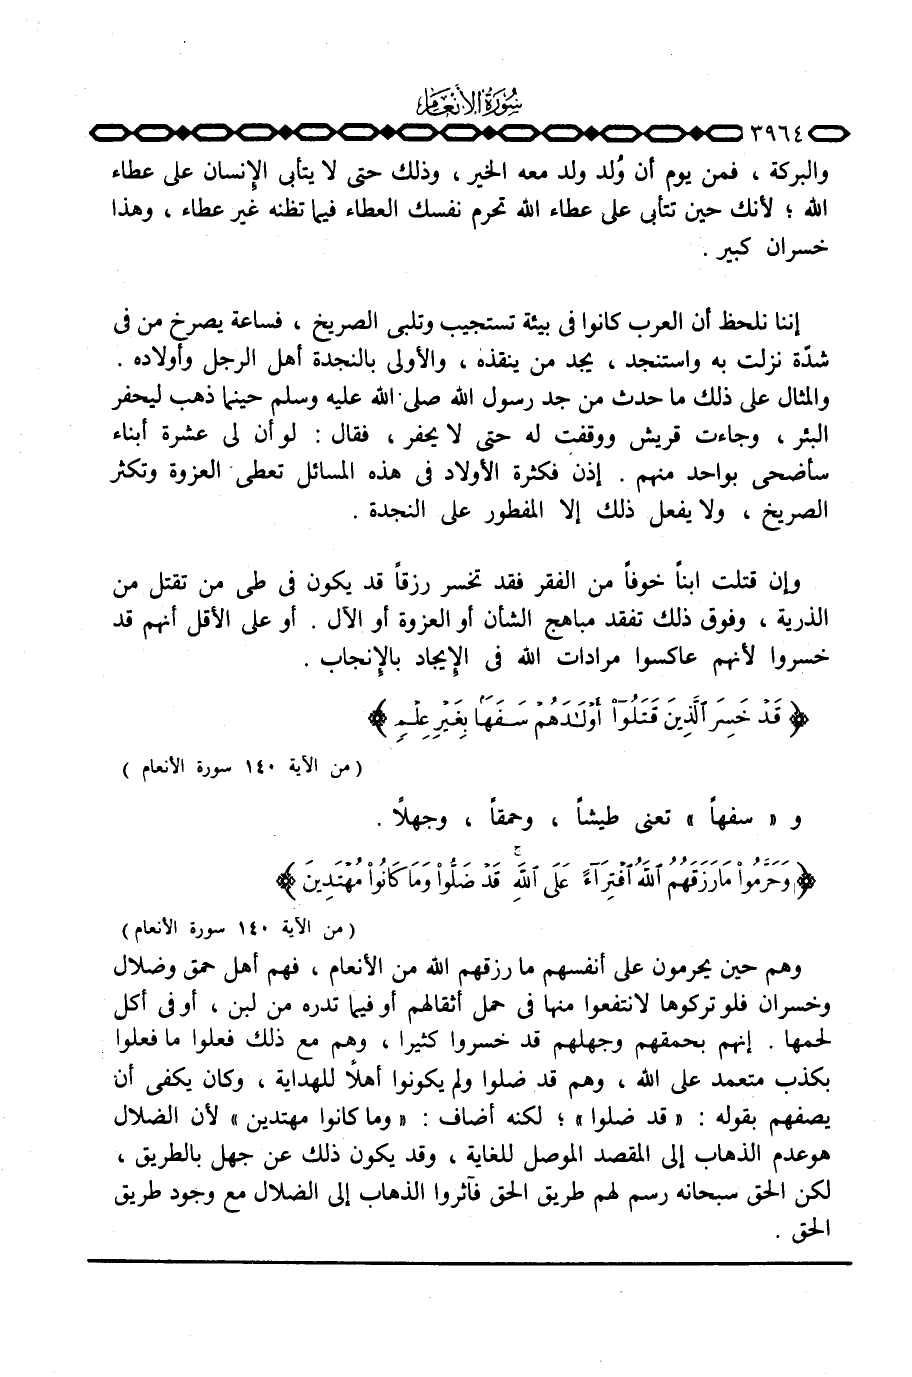 سورة الأنعام
٣٩٦٤
والبركة ، فمن يوم أن وُلد ولد معه الخير ، وذلك حتى لا يتأبى الإنسان على عطاء
الله ؛ لأنك حين تتأبى على عطاء الله تحرم نفسك العطاء فيما تظنه غير عطاء ، وهذا
خسران كبير .
إننا نلحظ أن العرب كانوا فى بيئة تستجيب وتلبى الصريخ ، فساعة يصرخ من فى
شدّة نزلت به واستنجد ، يجد من ينقذه ، والأولى بالنجدة أهل الرجل وأولاده .
والمثال على ذلك ما حدث من جد رسول الله صلى الله عليه وسلم حينما ذهب ليحفر
البئر ، وجاءت قريش ووقفت له حتى لا يحفر ، فقال : لو أن لى عشرة أبناء
سأضحى بواحد منهم . إذن فكثرة الأولاد فى هذه المسائل تعطى العزوة وتكثر
الصريخ ، ولا يفعل ذلك إلا المفطور على النجدة .
وإن قتلت ابناً خوفاً من الفقر فقد تخسر رزقاً قد يكون فى طى من تقتل من
الذرية ، وفوق ذلك تفقد مباهج الشأن أو العزوة أو الآل . أو على الأقل أنهم قد
خسروا لأنهم عاكسوا مرادات الله فى الإيجاد بالإنجاب .
﴿ قَدْ خَسِرَ ٱلَّذِينَ قَتَلُوٓا۟ أَوْلَـٰدَهُمْ سَفَهَۢا بِغَيْرِ عِلْمٍ ﴾
( من الآية ١٤٠ سورة الأنعام )
و « سفهاً » تعنى طيشاً ، وحمقاً ، وجهلاً .
﴿ وَحَرَّمُوا۟ مَا رَزَقَهُمُ ٱللَّهُ ٱفْتِرَآءً عَلَى ٱللَّهِ ۚ قَدْ ضَلُّوا۟ وَمَا كَانُوا۟ مُهْتَدِينَ ﴾
( من الآية ١٤٠ سورة الأنعام )
وهم حين يحرمون على أنفسهم ما رزقهم الله من الأنعام ، فهم أهل حمق وضلال
وخسران فلو تركوها لانتفعوا منها فى حمل أثقالهم أو فيما تدره من لبن ، أو فى أكل
لحمها . إنهم بحمقهم وجهلهم قد خسروا كثيرا ، وهم مع ذلك فعلوا ما فعلوا
بكذب متعمد على الله ، وهم قد ضلوا ولم يكونوا أهلاً للهداية ، وكان يكفى أن
يصفهم بقوله : « قد ضلوا » ؛ لكنه أضاف : « وما كانوا مهتدين » لأن الضلال
هو عدم الذهاب إلى المقصد الموصل للغاية ، وقد يكون ذلك عن جهل بالطريق ،
لكن الحق سبحانه رسم لهم طريق الحق فآثروا الذهاب إلى الضلال مع وجود طريق
الحق .